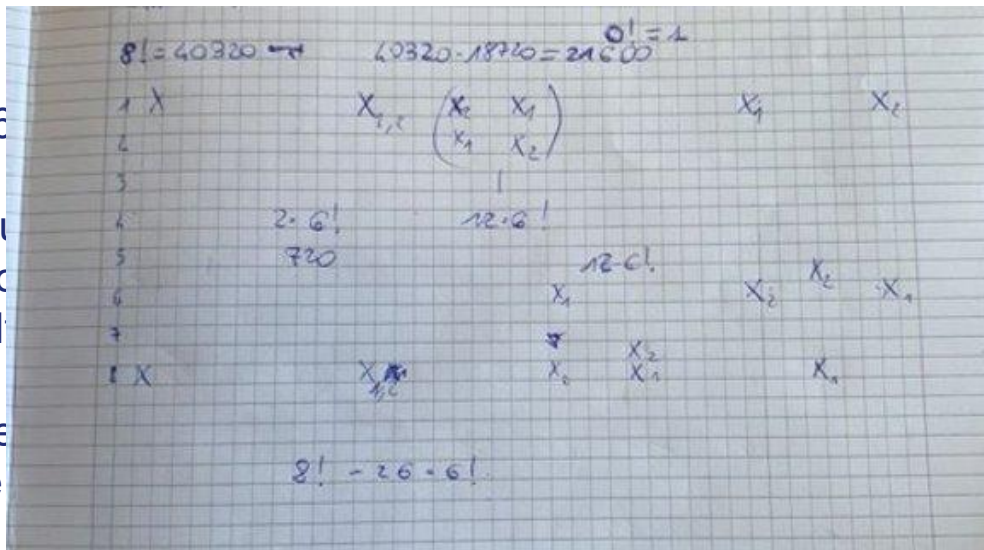 0! = 1
8! = 40320 → 40320 - 18720 = 21600
1 X X₁,₂ (X₂ X₁) X₁ X₂
2 (X₁ X₂)
3
4 2 · 6! 12 · 6!
5 720 12 · 6!
6 X₁ X₂ X₂ X₁
7
8 X X₁,₂ X₂ X₂ X₁ X₁
8! - 26 · 6!